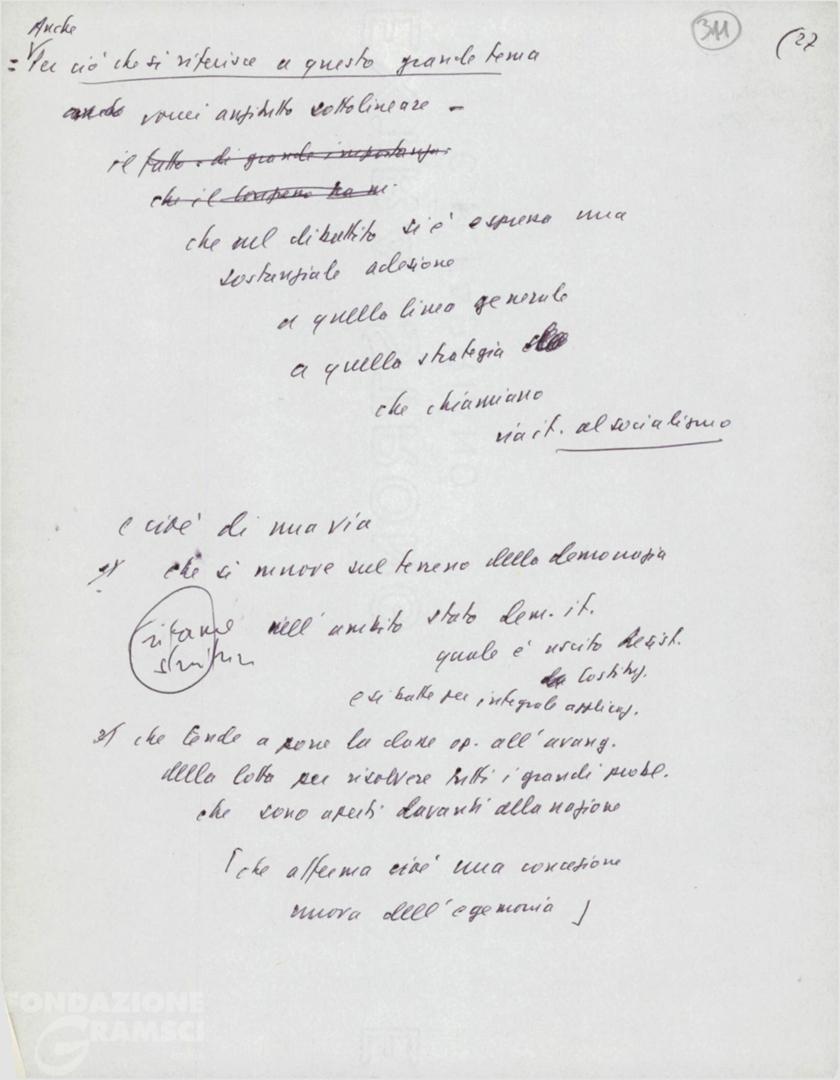 311
(27
Anche
= Per ciò che si riferisce a questo grande tema
vorrei anzitutto sottolineare –
il fatto di grande importanza
che il Congresso ha
che nel dibattito si è espressa una
sostanziale adesione
a quella linea generale
a quella strategia
che chiamiamo
via it. al socialismo
e cioè di una via
1) che si muove sul terreno della democrazia
riforme
strutture
nell'ambito stato dem. it.
quale è uscito Resist.
da Costituz.
e si batte per integrale applicaz.
2) che tende a porre la classe op. all'avang.
della lotta per risolvere tutti i grandi probl.
che sono aperti davanti alla nazione
[ che afferma cioè una concezione
nuova dell'egemonia ]
FONDAZIONE
GRAMSCI